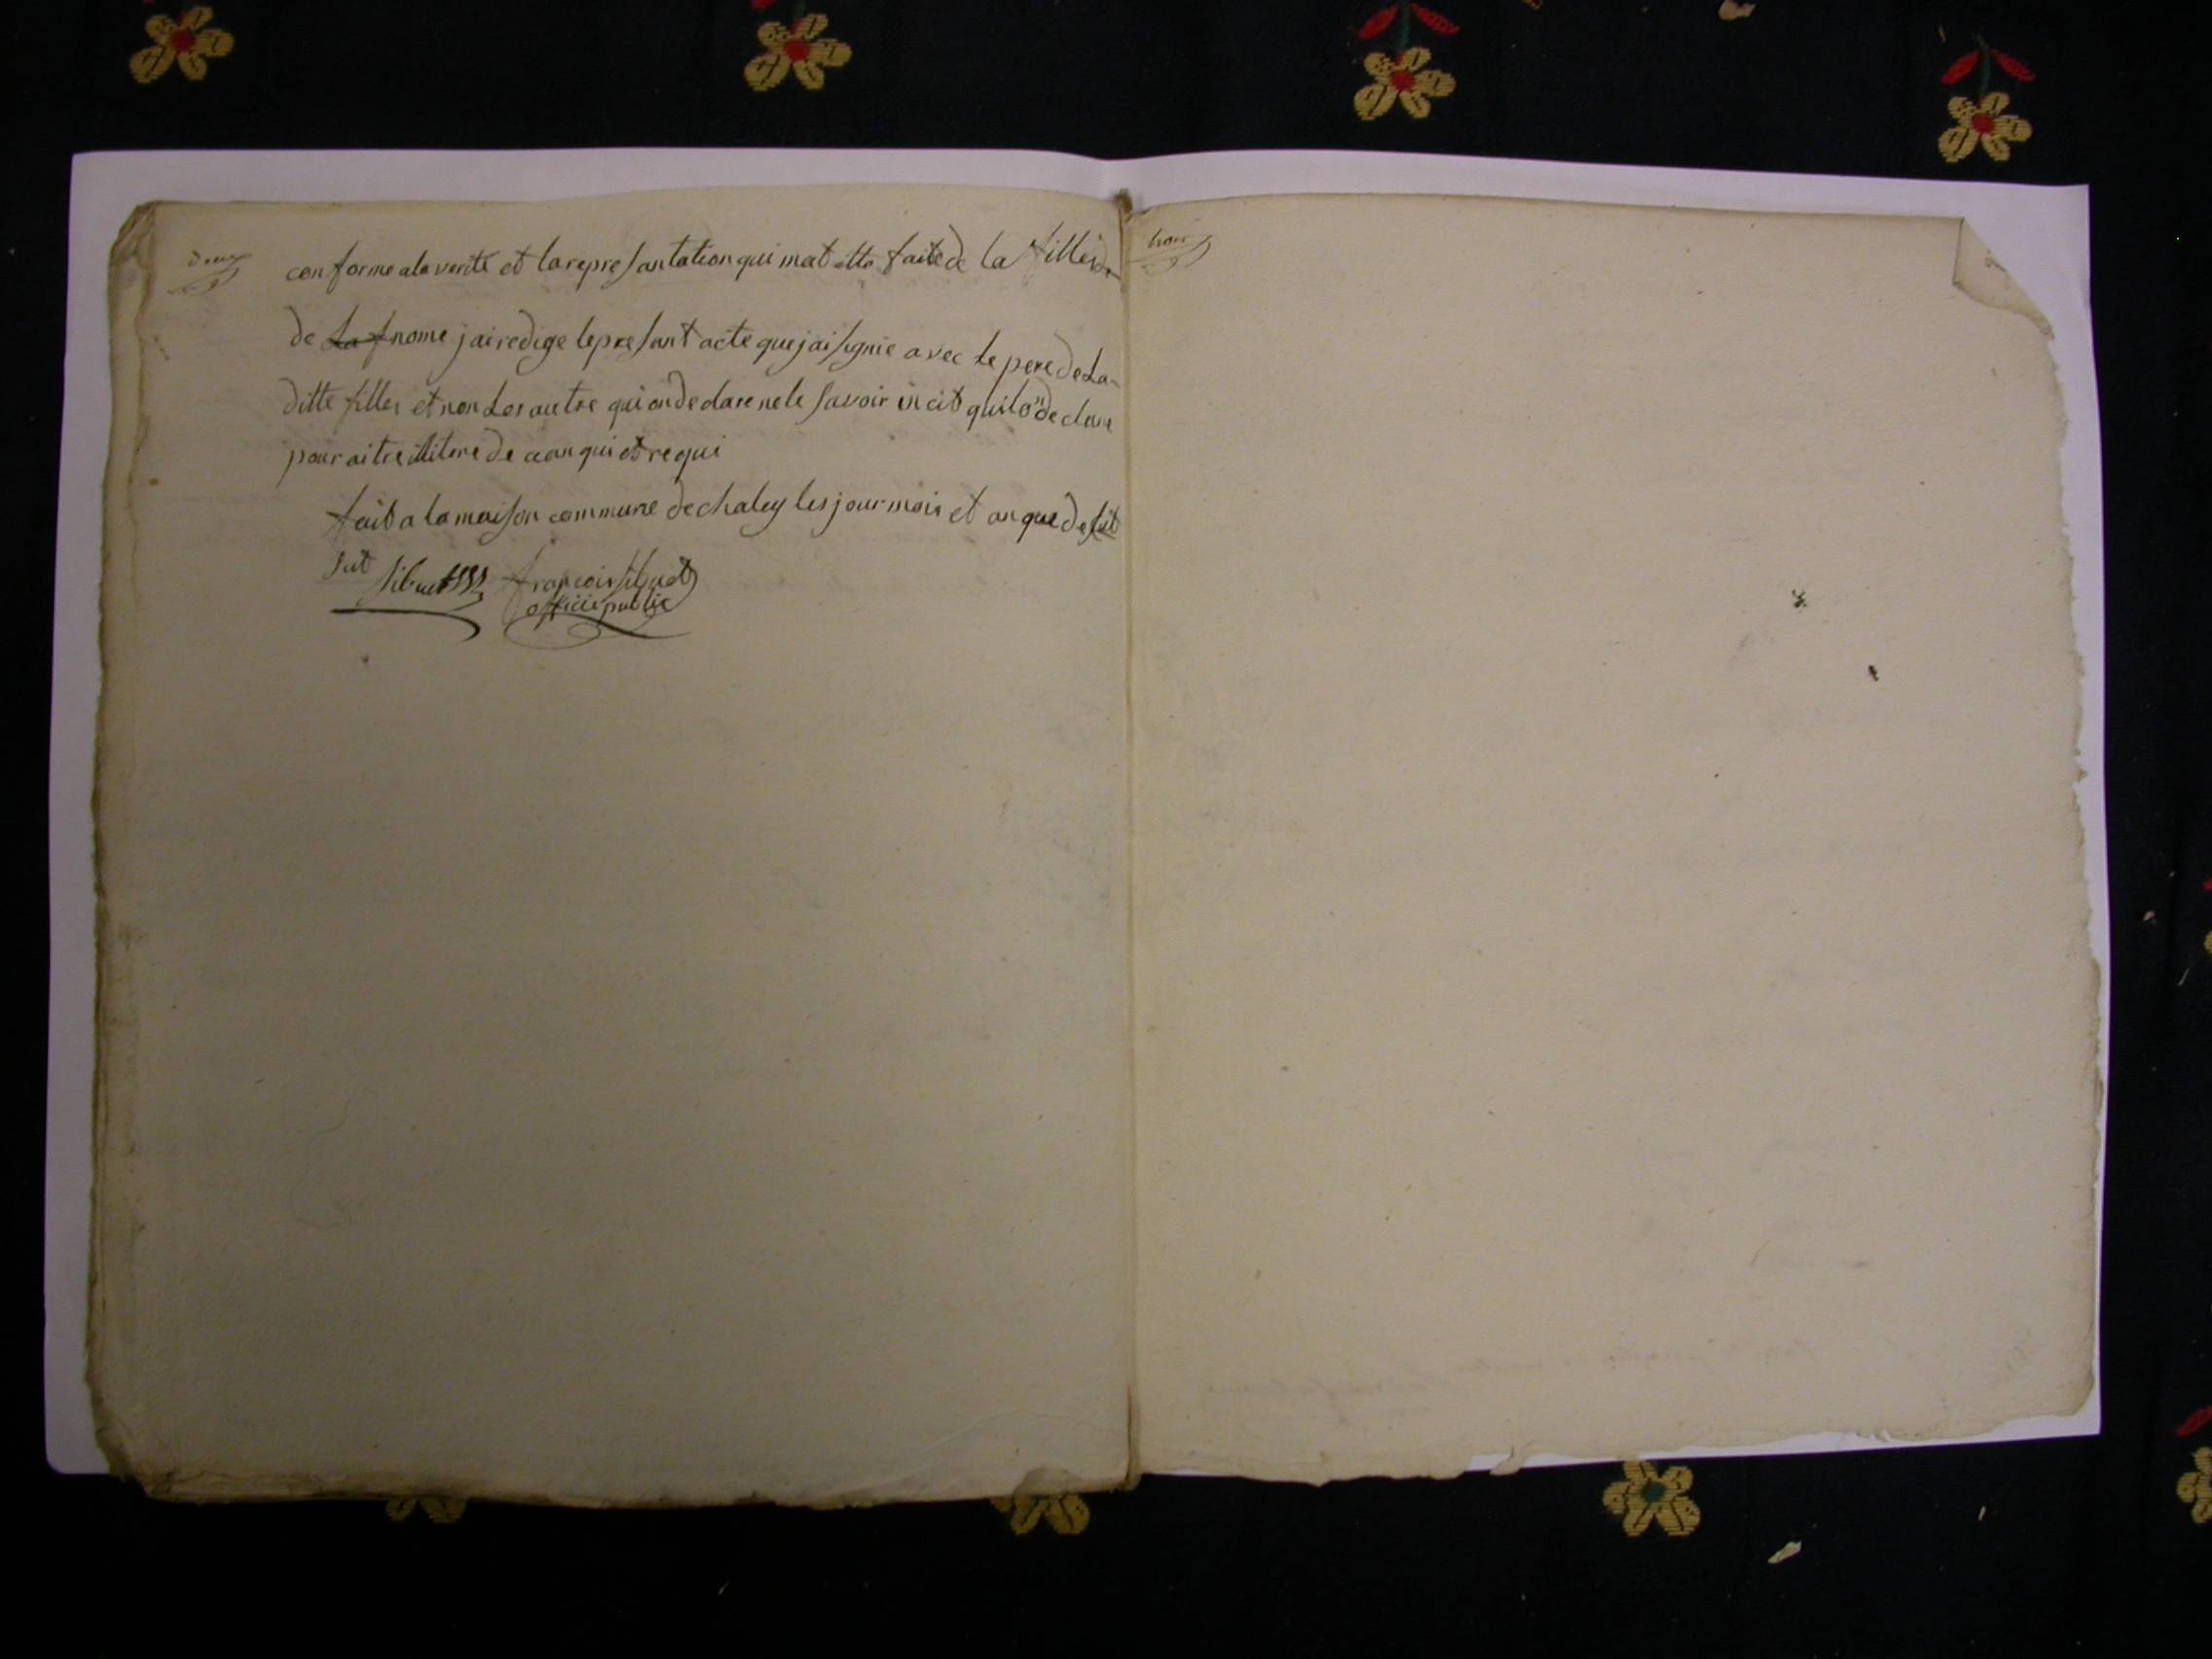 deux
conforme a la verite et la represantation qui mat ette faite de la filles de
de La f nome jai redige le presant acte que jai signie avec le pere de La-
ditte filles et non Les autre qui on declare ne le savoir in cit quil on declare
pour aitre illitere de ce anqui et requi
fait a la maison commune de chaley les jour mois et an que desut
sut
sibuet francois sibuet
officie public
trois